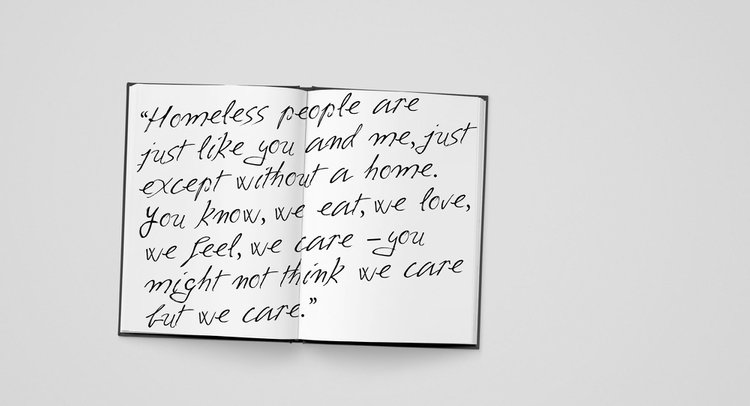 “Homeless people are
just like you and me, just
except without a home.
You know, we eat, we love,
we feel, we care – you
might not think we care
but we care.”